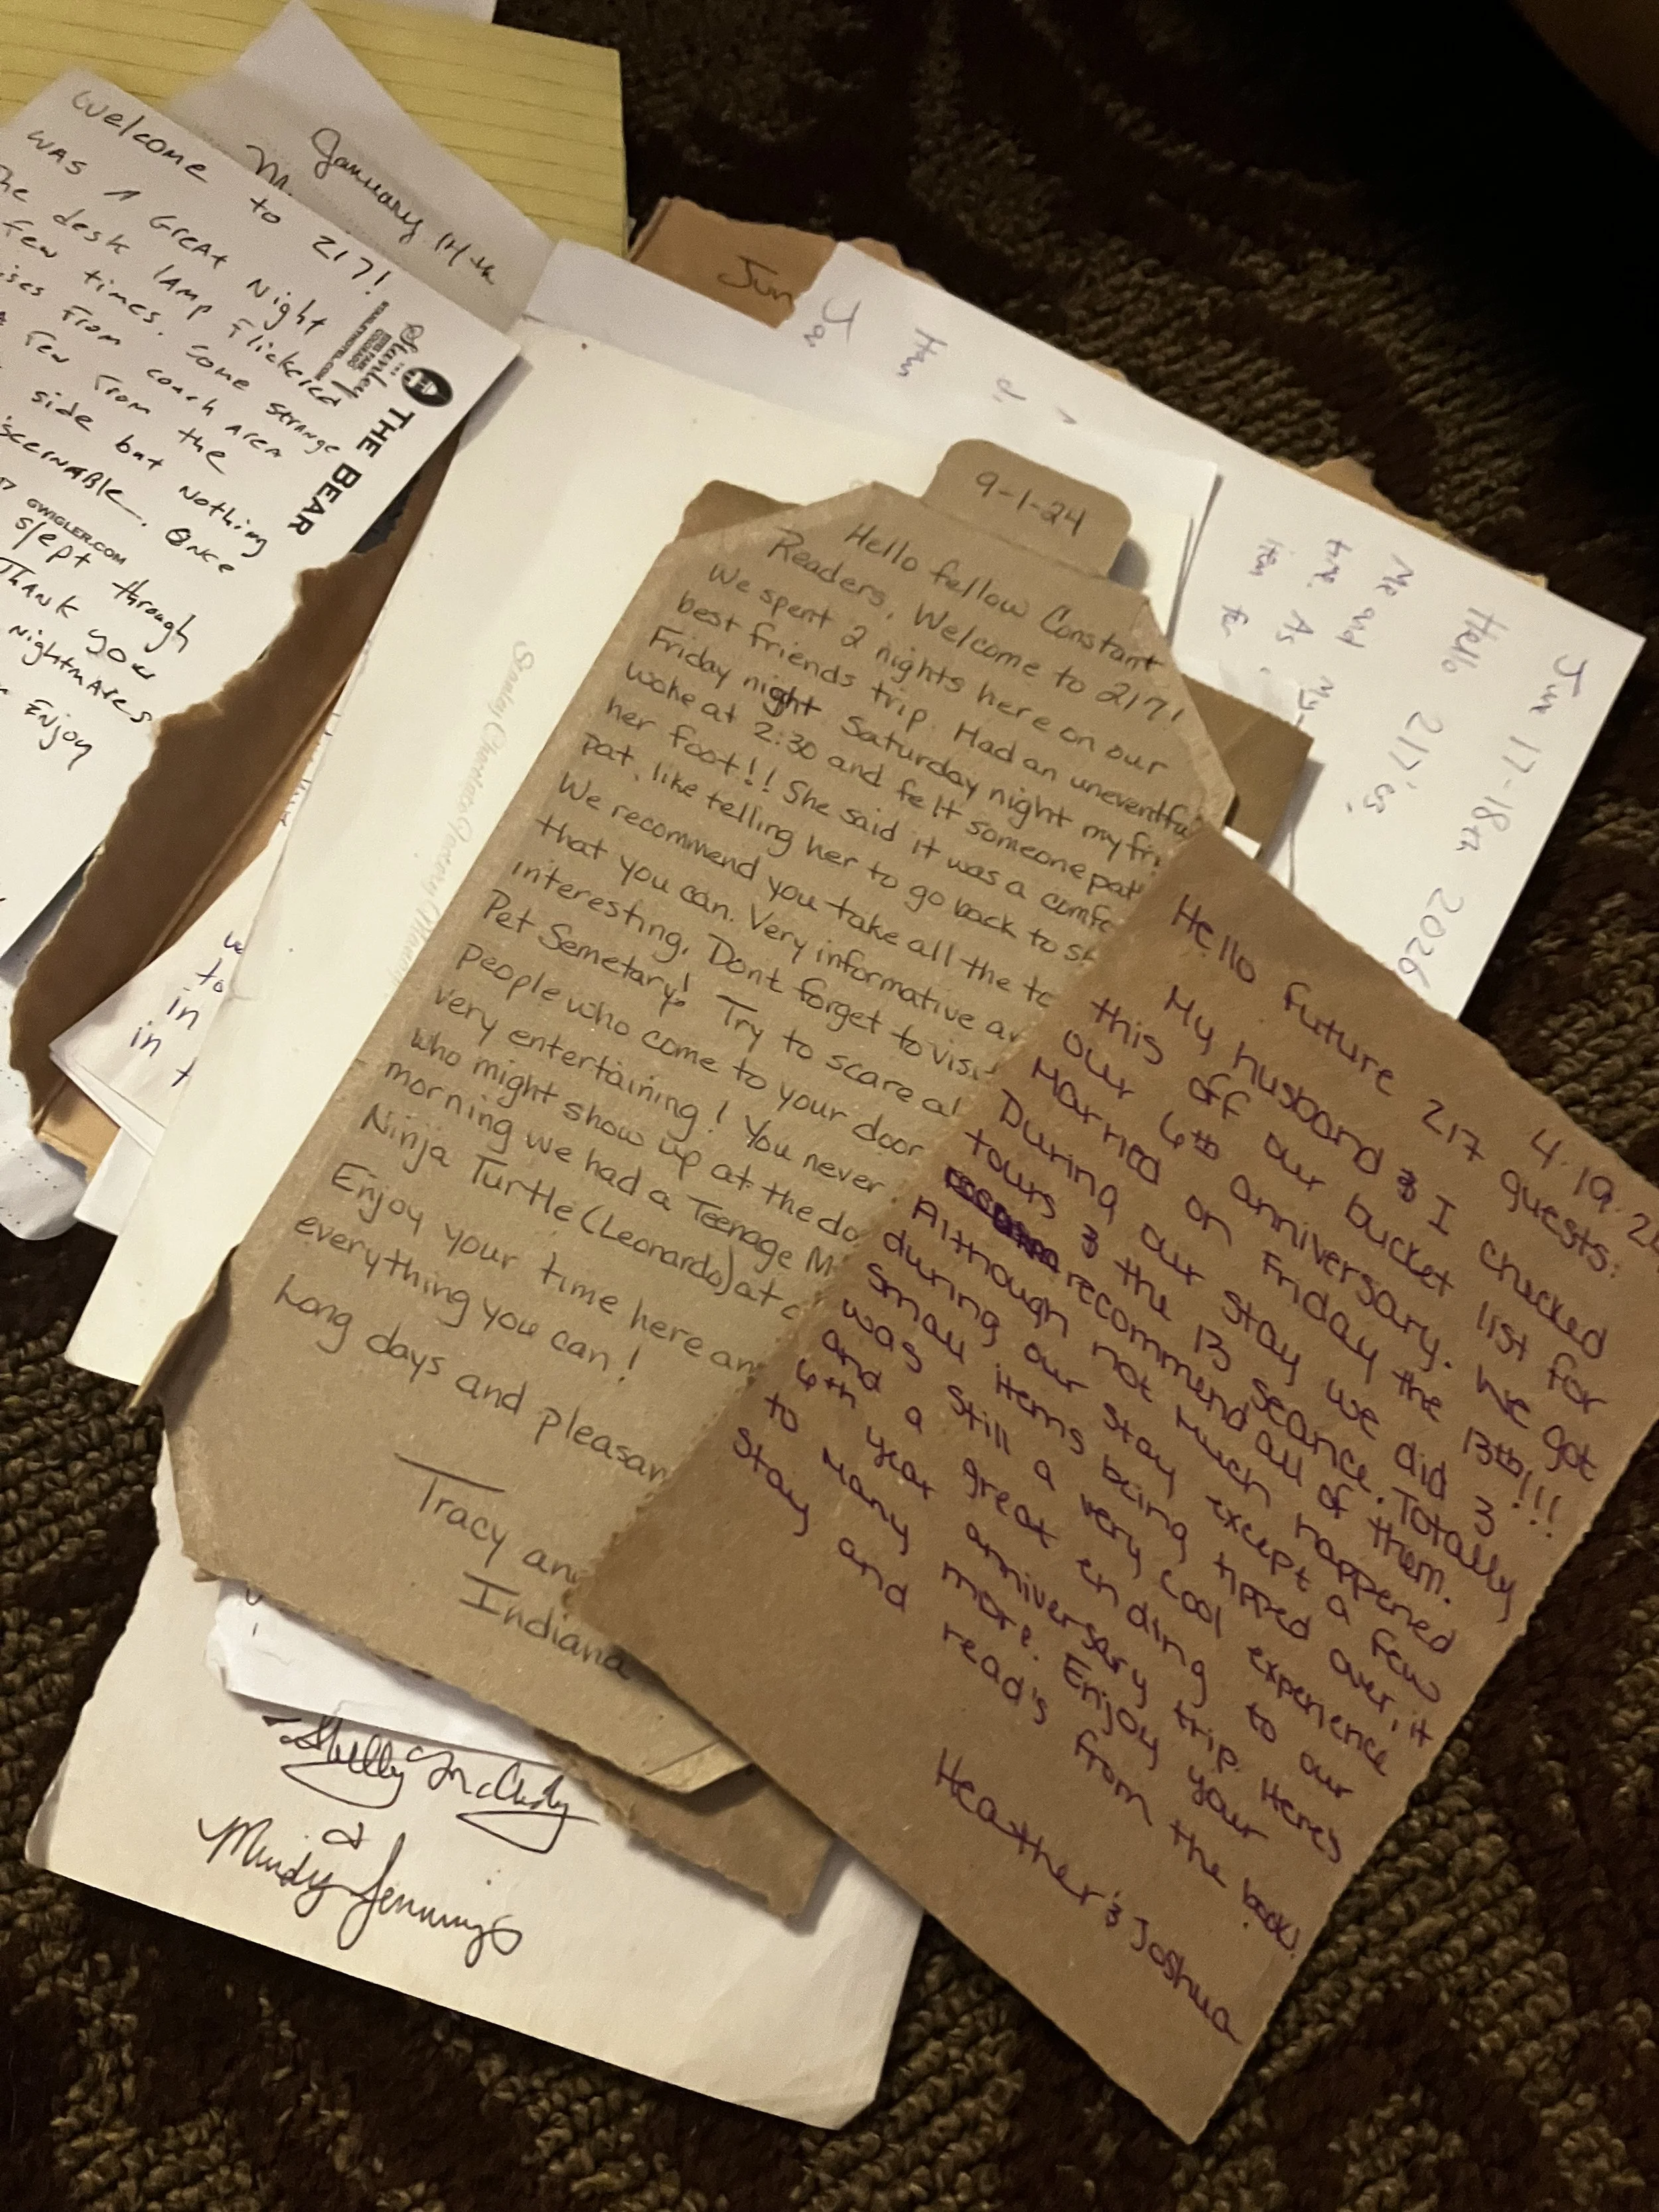 Welcome to 217!
was A Great Night
The desk lamp Flickered
few times. Some strange
from coach Area
Few From the
side but Nothing
ONce
slept through
THANK you
NightmAres
Enjoy
THE BEAR
Stanley
GWIGLER.COM
January
Jun
9-1-24
Hello fellow Constant
Readers, Welcome to 217!
We spent 2 nights here on our
best friends trip. Had an uneventful
Friday night Saturday night my
woke at 2:30 and felt someone pat
her foot!! She said it was a
pat, like telling her to go back to
We recommend you take all the
that you can. Very informative
interesting. Dont forget to visi
Pet Semetary! Try to scare
people who come to your door
very entertaining! You never
who might show up at the
morning we had a Teenage
Ninja Turtle (Leonardo) at
Enjoy your time here
everything you can!
Long days and
Tracy
Indiana
4.19.2
Hello future 217 guests:
My husband & I checked
this off our bucket list for
our 6th anniversary. We got
Married on Friday the 13th!!!
During our stay we did 3
tours & the 13 seance. Totally
recommend all of them.
Although not much happened
during our stay except a few
small items being tipped over, it
was still a very cool experience
and a great ending to our
6th year anniversary trip. Here's
to many more. Enjoy your
stay and read's from the book!
Heather & Joshua
Jun 17-18th 2026
Hello 217'es!
Me and my
As
to
in
in t
Stanley Chocolate Factory
Shelly
&
Mindy Jennings